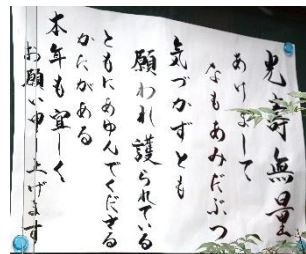 光寿無量
あけまして
なもあみだぶつ
気づかずとも
願われ護られている
ともにあゆんでくださる
かたがある
本年も宜しく
お願い申し上げます